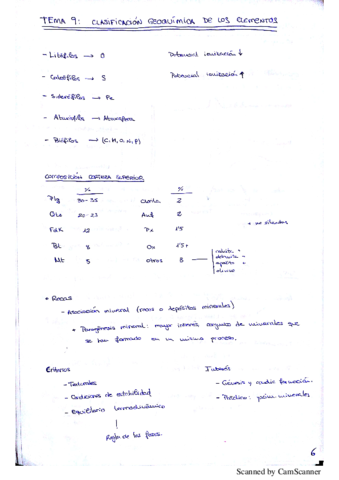 TEMA 9: CLASIFICACIÓN GEOQUÍMICA DE LOS ELEMENTOS
- Litófilos → O Potencial ionización ↓
- Calcófilos → S Potencial ionización ↑
- Siderófilos → Fe
- Atmófilos → Atmósfera
- Biófilos → (C, H, O, N, P)
COMPOSICIÓN CORTEZA SUPERIOR
% %
Plg 30-35 2
Qtz 20-23 Anf 2
FdK 12 Px 15
Bt 8 15+ + no silicatos
Mt 5 otros 8 →
apatito
olivino
* Rocas
- Asociación mineral (rocas o depósitos minerales)
* Paragénesis mineral: mayor interés conjunto de minerales que
se han formado en un mismo proceso.
Criterios Interés
- Texturales - Génesis y condic. formación.
- Condiciones de estabilidad - Práctico: minerales
- Equilibrio termodinámico
Regla de las fases.
6
Scanned by CamScanner